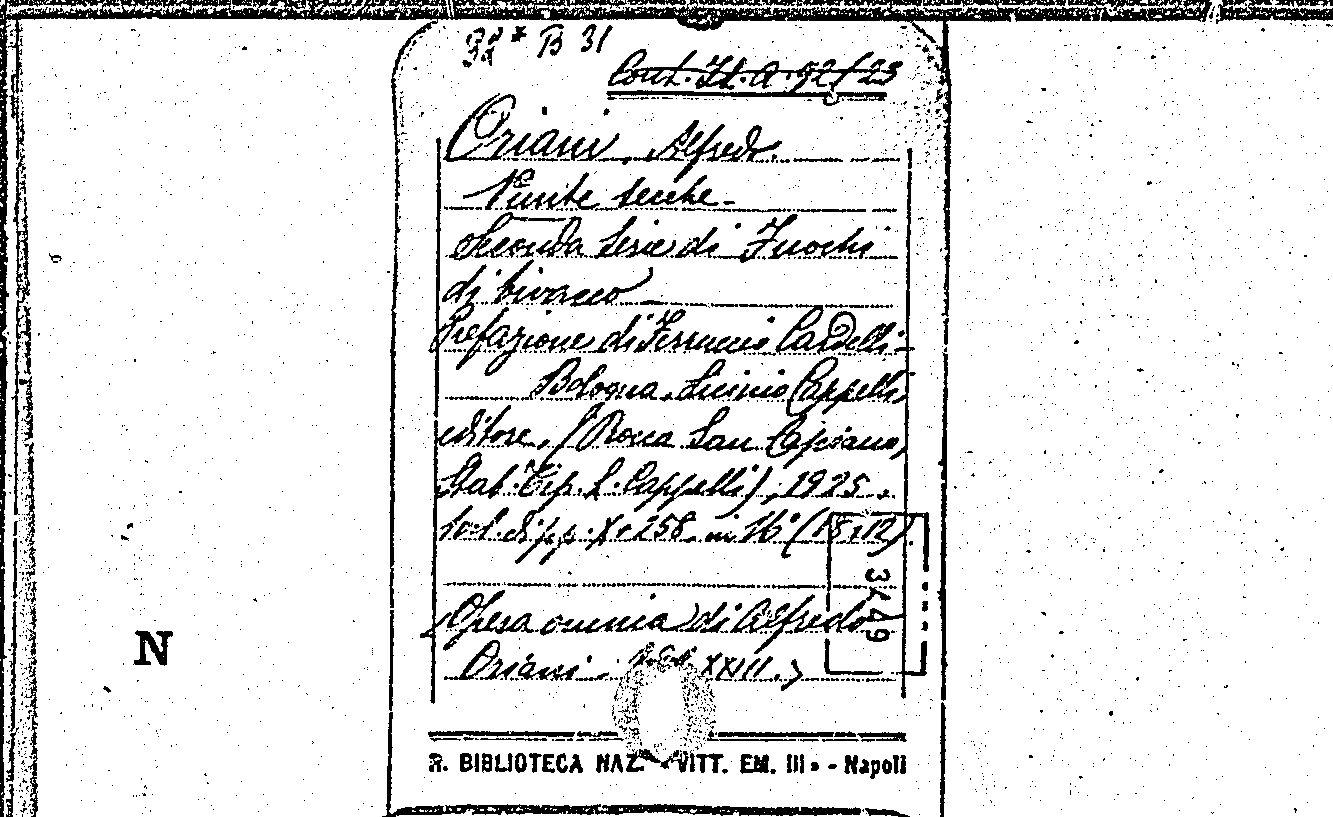 B 31
Cont. It. A. 92/23
Oriani, Alfredo.
Punte secche -
Seconda serie di Fuochi
di bivacco
Prefazione di Ferruccio Cardelli -
Bologna, Licinio Cappelli
editore, (Rocca San Casciano,
Stab. Tip. L. Cappelli), 1925.
vol. di pp. X + 258. in 16° (18,12).
3449
Opera omnia di Alfredo
Oriani. Vol. XXIII.)
N
R. BIBLIOTECA NAZ. VITT. EM. III - Napoli